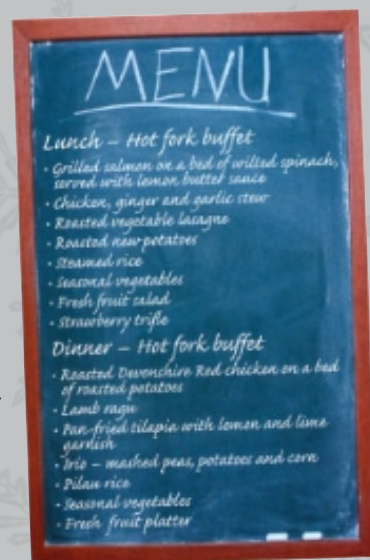 MENU
Lunch – Hot fork buffet
• Grilled salmon on a bed of wilted spinach,
served with lemon butter sauce
• Chicken, ginger and garlic stew
• Roasted vegetable lasagne
• Roasted new potatoes
• Steamed rice
• Seasonal vegetables
• Fresh fruit salad
• Strawberry trifle
Dinner – Hot fork buffet
• Roasted Devonshire Red chicken on a bed
of roasted potatoes
• Lamb ragu
• Pan-fried tilapia with lemon and lime
garnish
• Irio – mashed peas, potatoes and corn
• Pilau rice
• Seasonal vegetables
• Fresh fruit platter